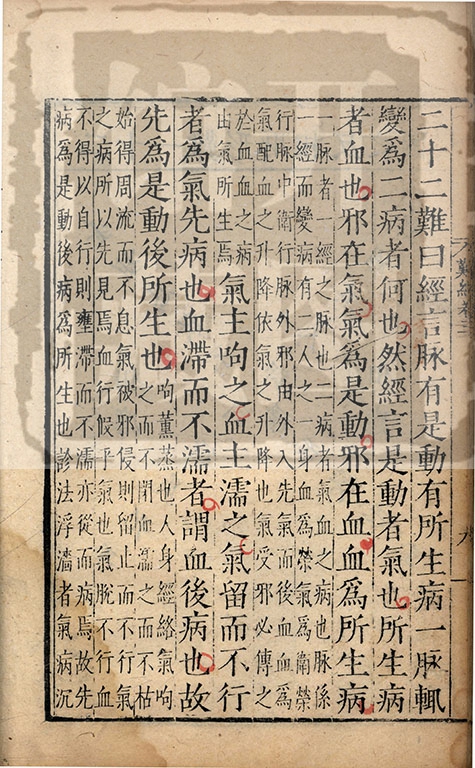 二十二難曰經言脉有是動有所生病一脉輒
變爲二病者何也然經言是動者氣也所生病
者血也邪在氣氣爲是動邪在血血爲所生病
一脉者一經之脉也二病者氣血之病也脉係
一經而變病有二人之一身血爲榮氣爲衛榮
行脉中衛行脉外外邪由外入先氣而後血血爲
氣配血血之升降依氣之升降也氣受邪必傳之
於血血之病
由氣所生焉
氣主呴之血主濡之氣留而不行
者爲氣先病也血滯而不濡者謂血後病也故
先爲是動後所生也
呴薰蒸也人身經絡氣呴
之而不閉血濡之而不枯
始得周流而不息氣被邪侵則留止而不行氣
之病所以先見焉血行候乎氣也氣脫不行血
不得以自行則壅滯而不濡亦從而病焉故先
病爲是動後病爲所生也診法浮濇者氣病沉
難經卷三